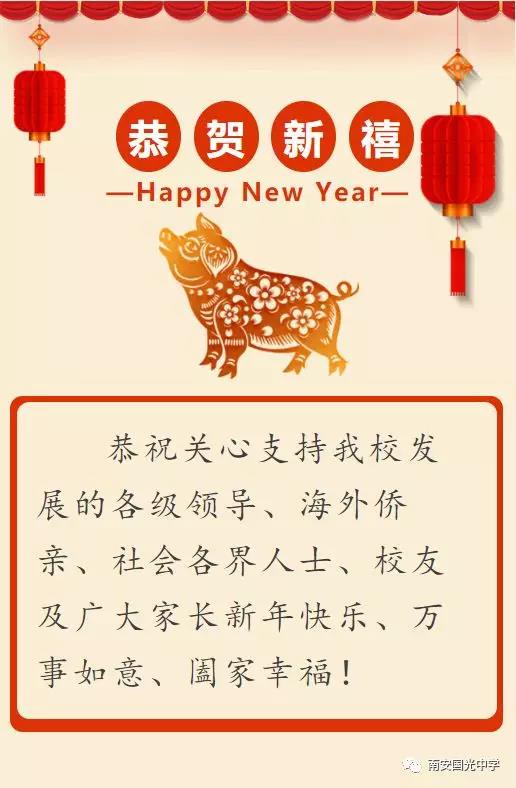 恭贺新禧
—Happy New Year—
恭祝关心支持我校发
展的各级领导、海外侨
亲、社会各界人士、校友
及广大家长新年快乐、万
事如意、阖家幸福！
南安国光中学